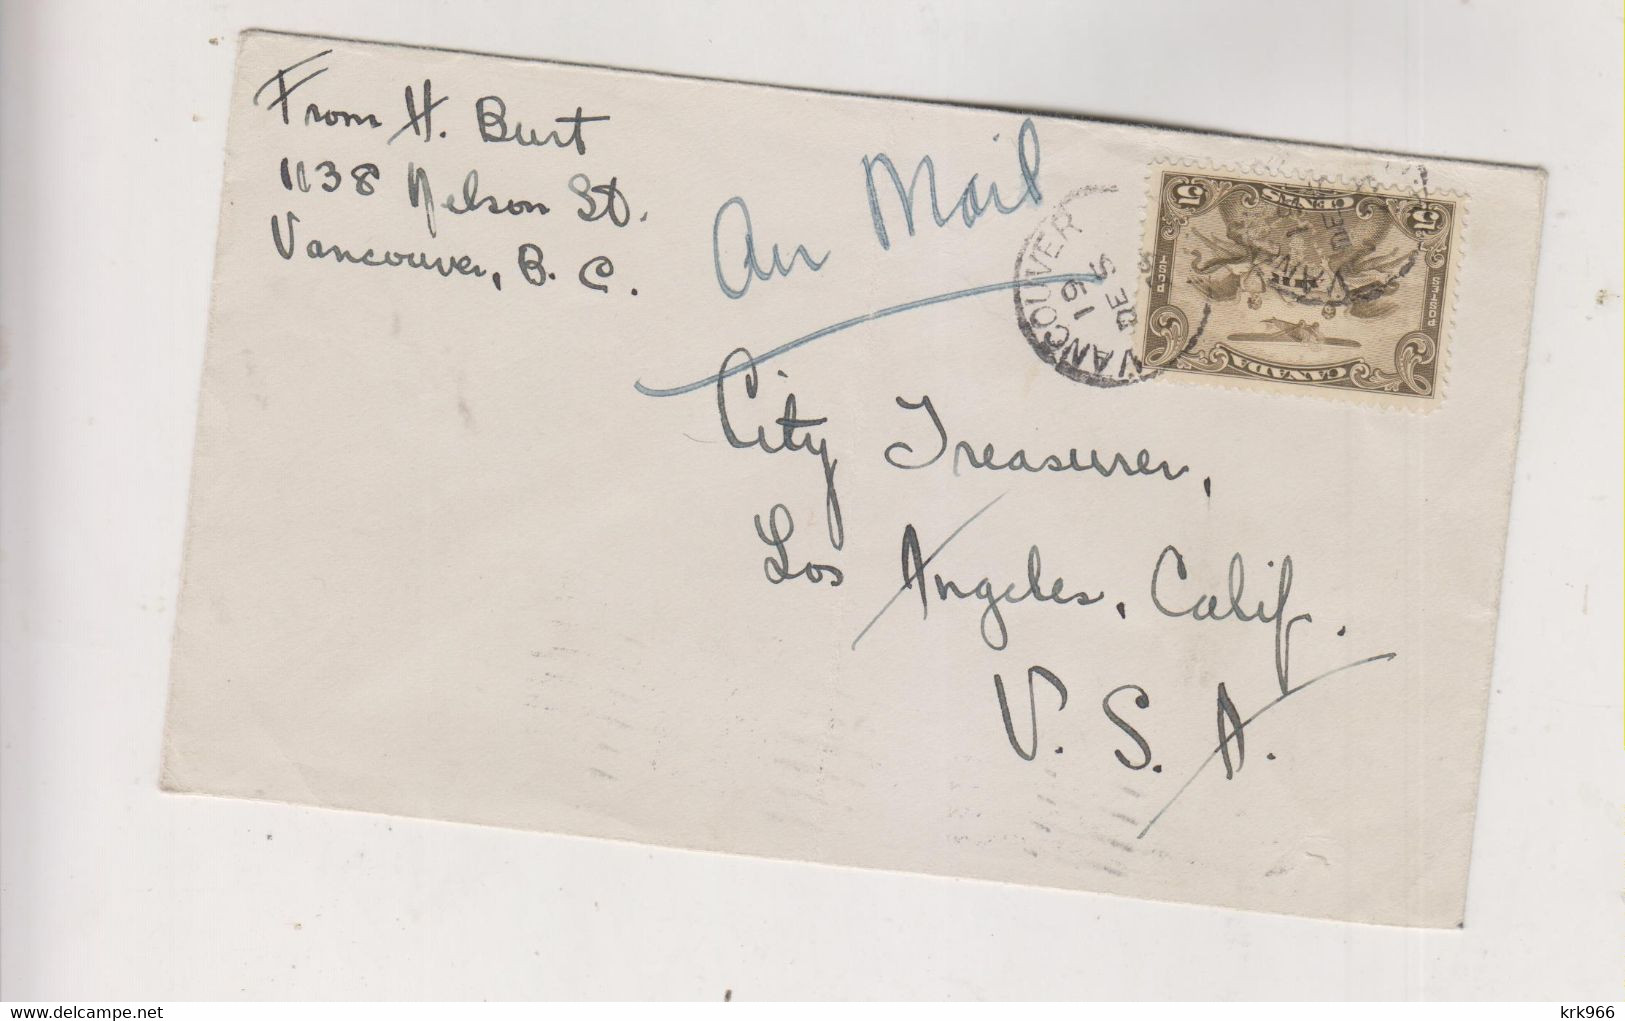 From H. Burt
1138 Nelson St.
Vancouver, B. C.
Air Mail
VANCOUVER
16
DE
5
CANADA
POSTES
POST
5 CENTS 5
VAN
DE
City Treasurer,
Los Angeles, Calif.
U. S. A.
delcampe.net
krk966